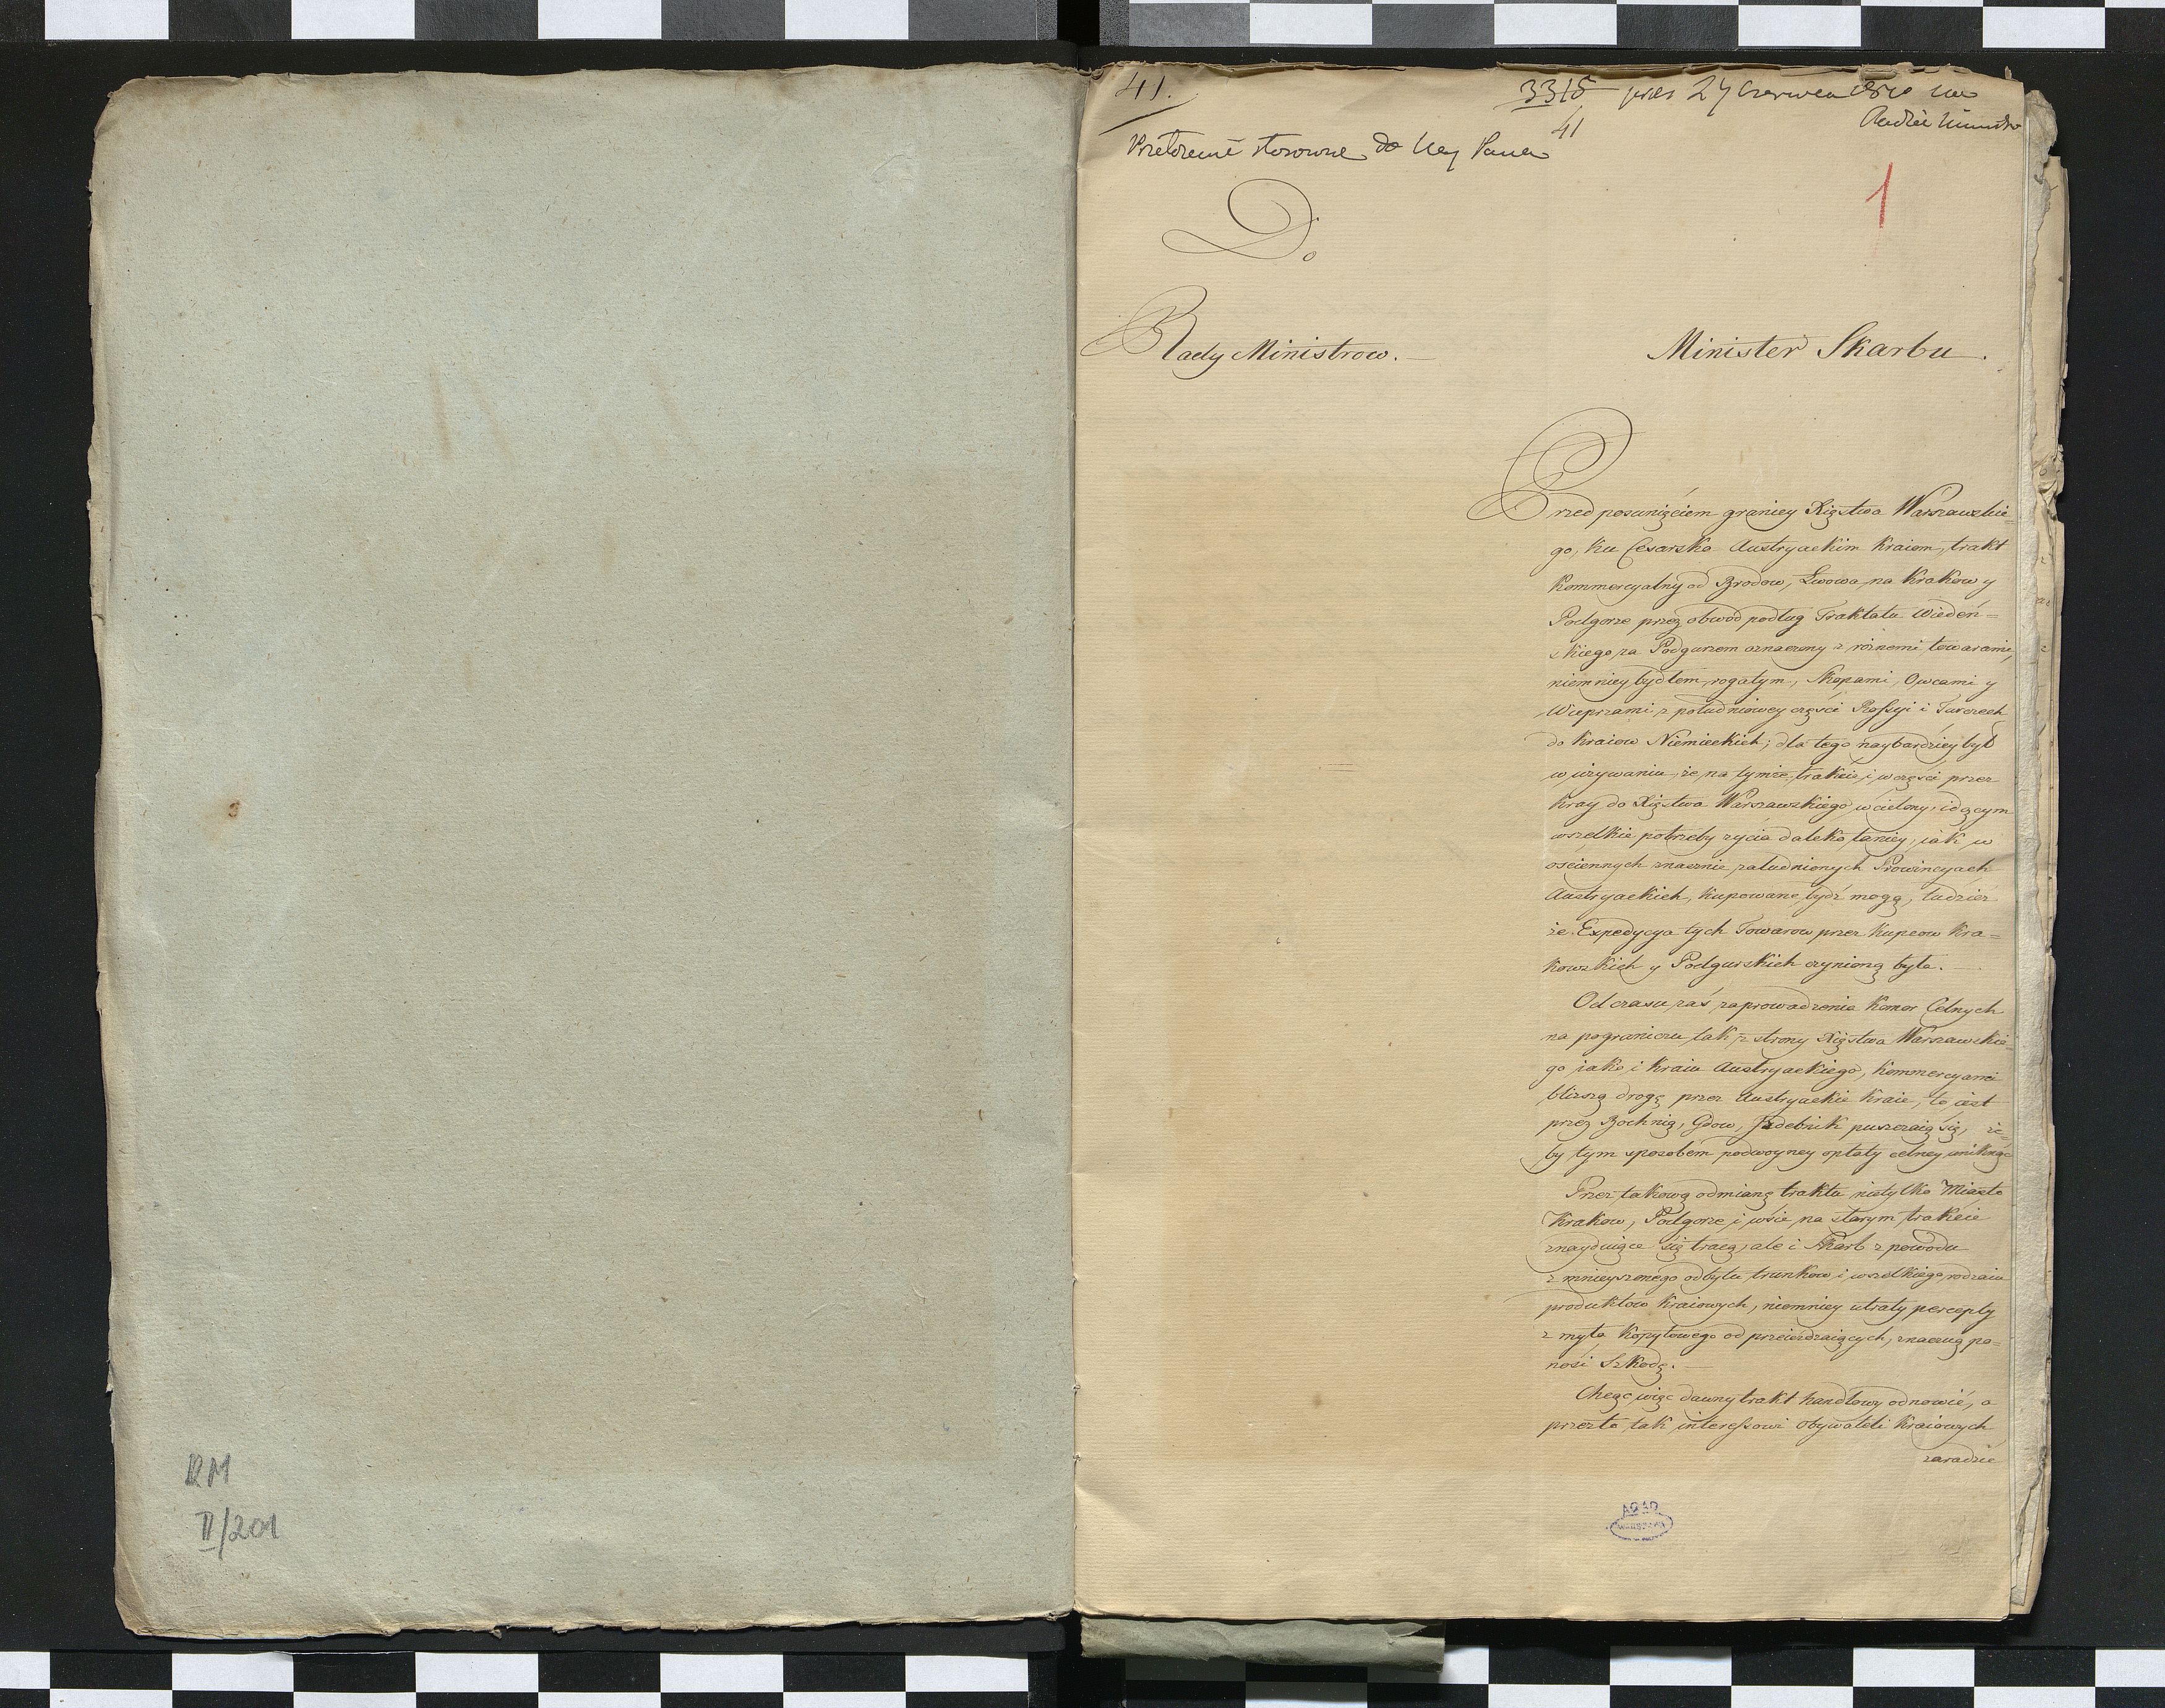 RM
II/201
41.
3315 pres 27 Czerwca 1810 na
Radzie Ministro
41
Przełożenie stosowne do Nay Pana
1
Do
Rady Ministrow.
Minister Skarbu.
Przed posunięciem granicy Xięstwa Warszawskie=
go, ku Cesarsko Austryackim Kraiom, trakt
Kommercyalny od Brodow, Lwowa, na Krakow y
Podgorze przez obwod podług Traktatu Wiedeń=
skiego za Podgurzem oznaczony z rożnemi towarami,
niemniey bydłem rogatym, Skopami, Owcami y
Wieprzami z południowey części Rossyi i Turczech
do Kraiow Niemieckich; dla tego naybardziey był
w używaniu, że na tymże trakcie, w części przez
Kray do Xięstwa Warszawskiego wcielony, idącym
wszelkie potrzeby życia daleko taniey, iak w
ościennych znacznie zaludnionych Prowincyach
Austryackich, kupowane bydź mogą, tudzież
że Expedycya tych Towarow przez Kupcow Kra=
kowskich y Podgurskich czynioną była.
Od czasu zaś zaprowadzenia Komor Celnych
na pograniczu tak z strony Xięstwa Warszawskie=
go iako i Kraiu Austryackiego, Kommercyanci
bliższą drogę przez Austryackie Kraie, to iest
przez Bochnią, Gdow, Izdebnik puszczaią się, że=
by tym sposobem podwoyney opłaty celney uniknąć
Przez takową odmianę traktu nietylko Miasta
Krakow, Podgorze i wsie na starym trakcie
znayduiące się tracą, ale i Skarb z powodu
zmnieyszonego odbytu trunkow i wszelkiego rodzaiu
produktow Kraiowych, niemniey utraty percepty
z myta Kopytowego od przeieżdzaiących, znaczną po=
nosi Szkodę.
Chcąc więc dawny trakt handlowy odnowić, a
przezto tak interessowi Obywateli Kraiowych
zaradzić
AGAD
WARSZAWA